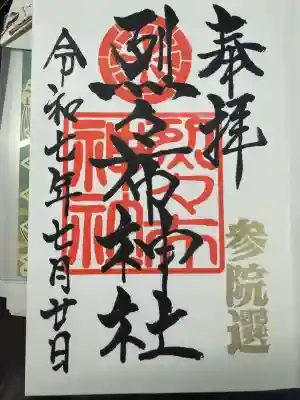 奉拝
参院選
烈々布神社
令和七年七月廿日